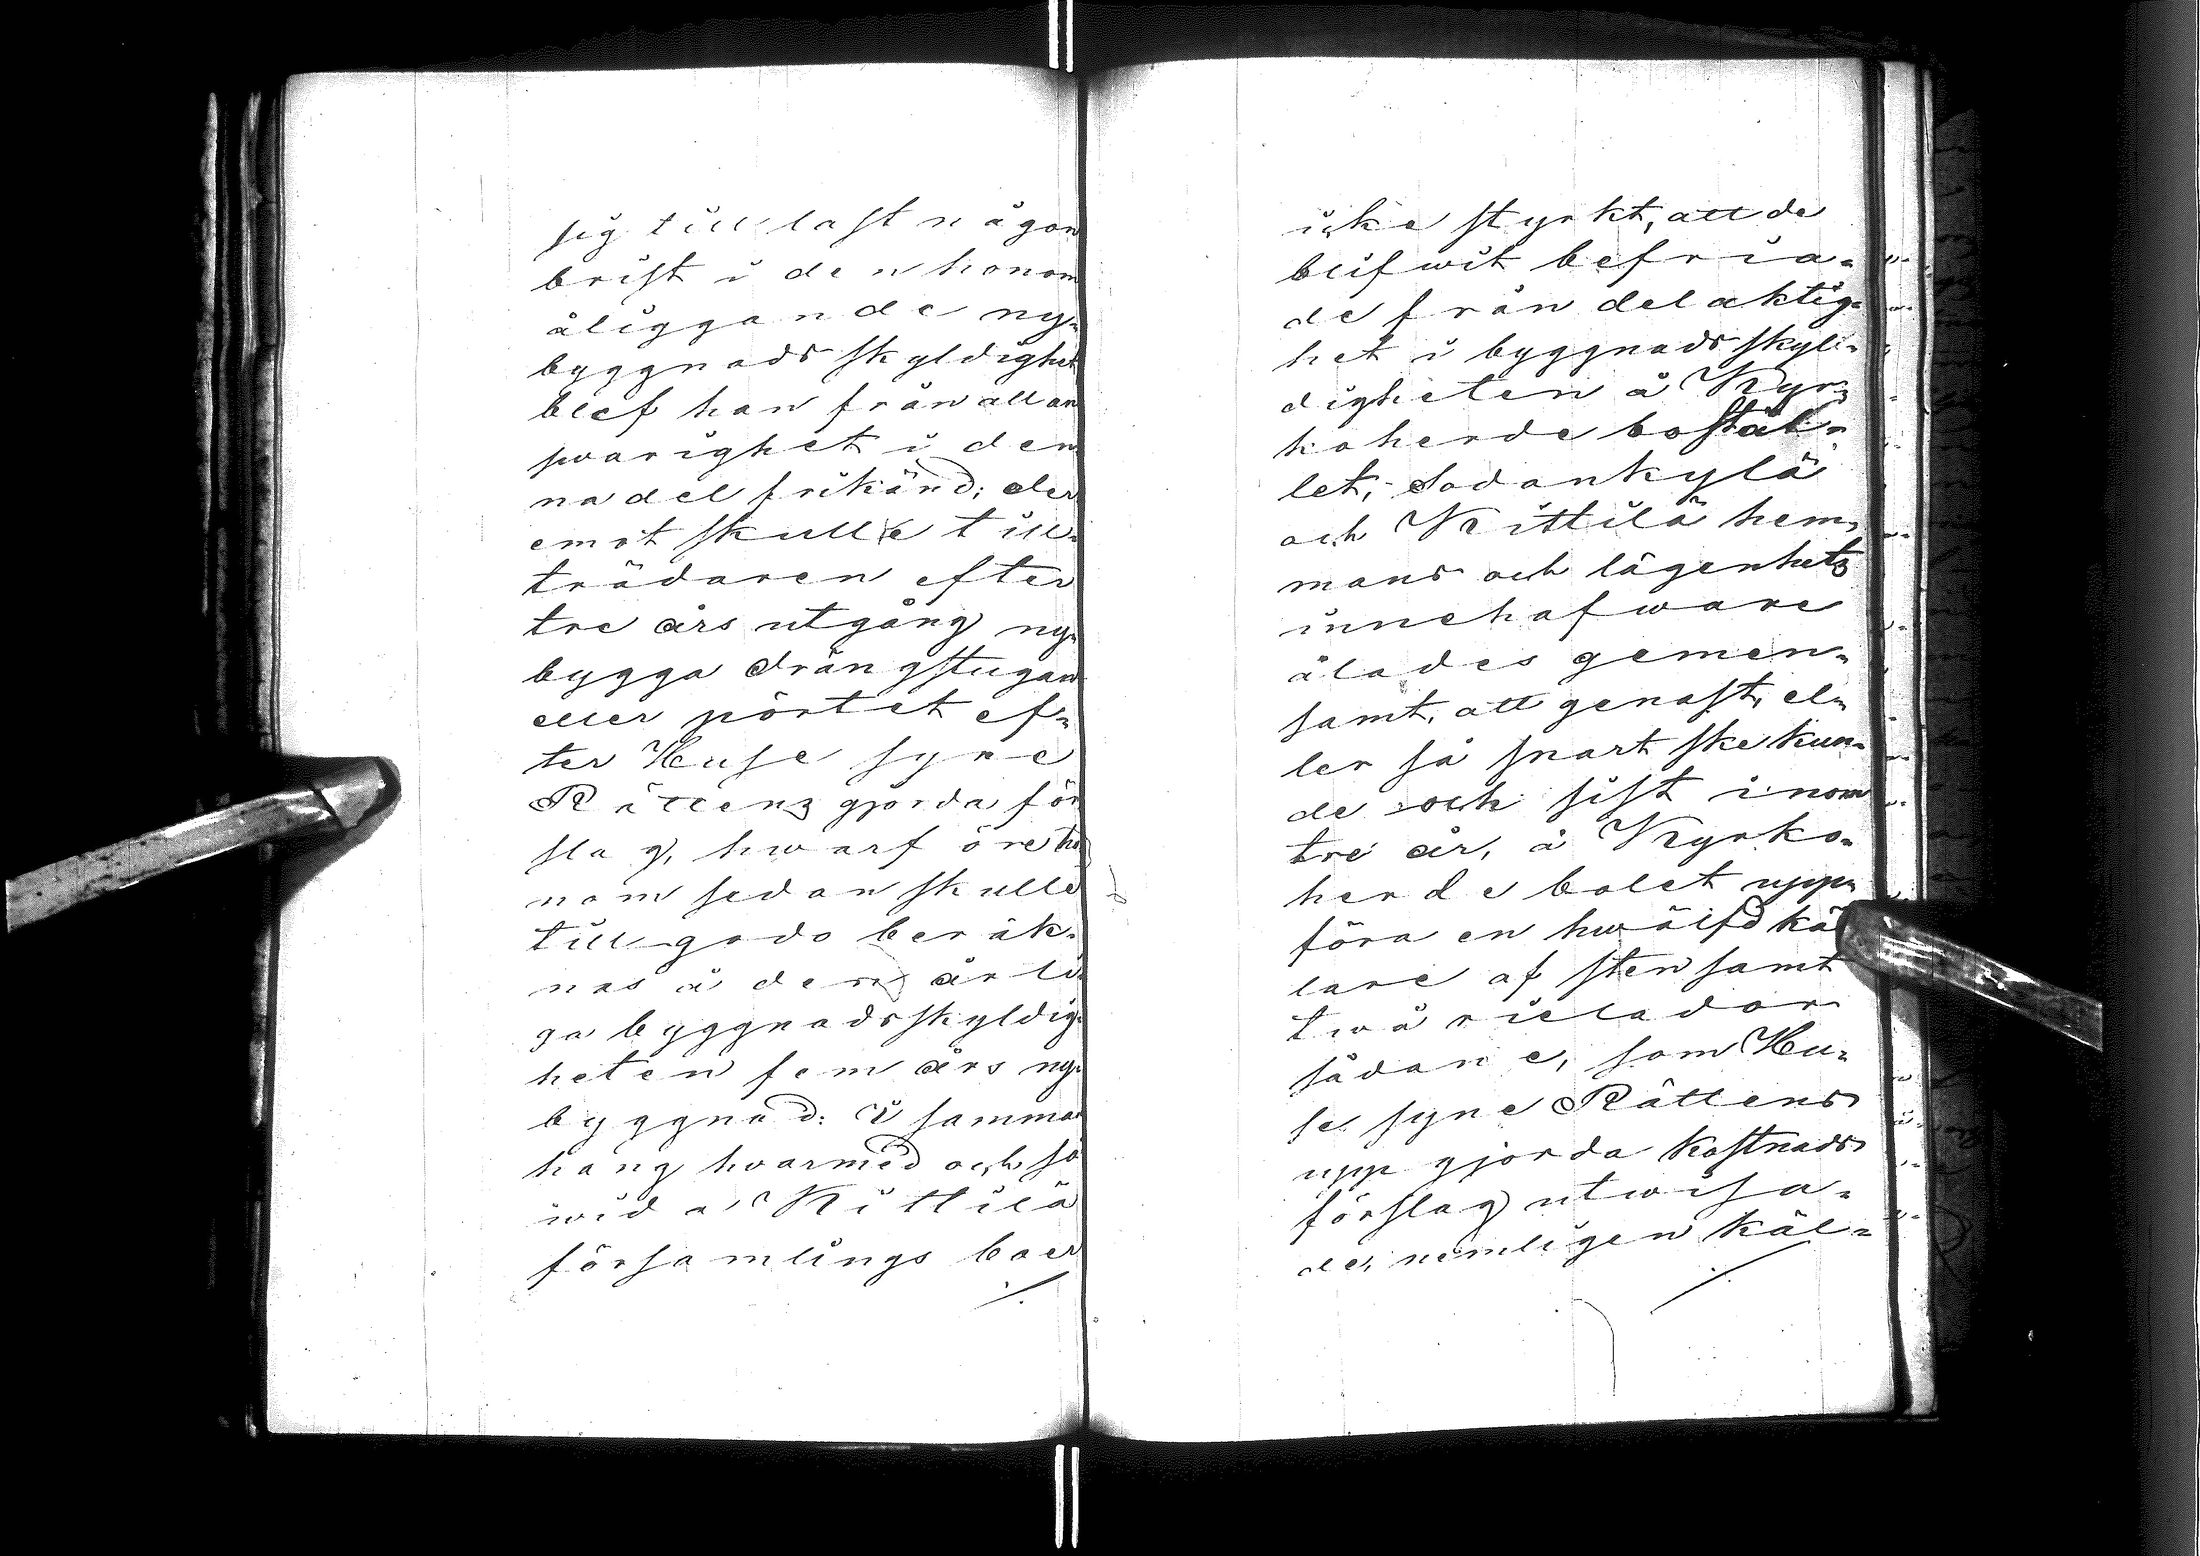 sig till last någon
brist i den honom
åliggande ny-
byggnads skyldighet
blef han från all an
svarighet i den
na del frikänd; der
emot skulle till-
trädaren efter
tre års utgång ny-
bygga drängstugan
eller pörtet ef-
ter Huse syne
Rättens gjorda för
slag, hwarföre ho
nom sedan skulle
till godo beräk-
nas å den årli
ga byggnadsskyldig-
heten fem års ny-
byggnad: I samman
hang hvarmed och så
wida Kittilä
församlings boer
./.
icke styrkt, att de
blifwit befria-
de från delaktig-
het i byggnads skyl-
digheten å Kyr-
koherde bostäl-
let, Sodankylä
och Kittilä hem-
mans och lägenhets
innehafware
ålades gemen-
samt, att genast, el-
ler så snart ske kun-
de och sist inom
tre år, å Kyrko-
herde bolet upp-
föra en hwälfd käl
lare af sten samt
twå rielador
sådane, som Hu-
se syne Rättens
upp gjorda kostnads
förslag utwisa-
de, nemligen käl-
./.